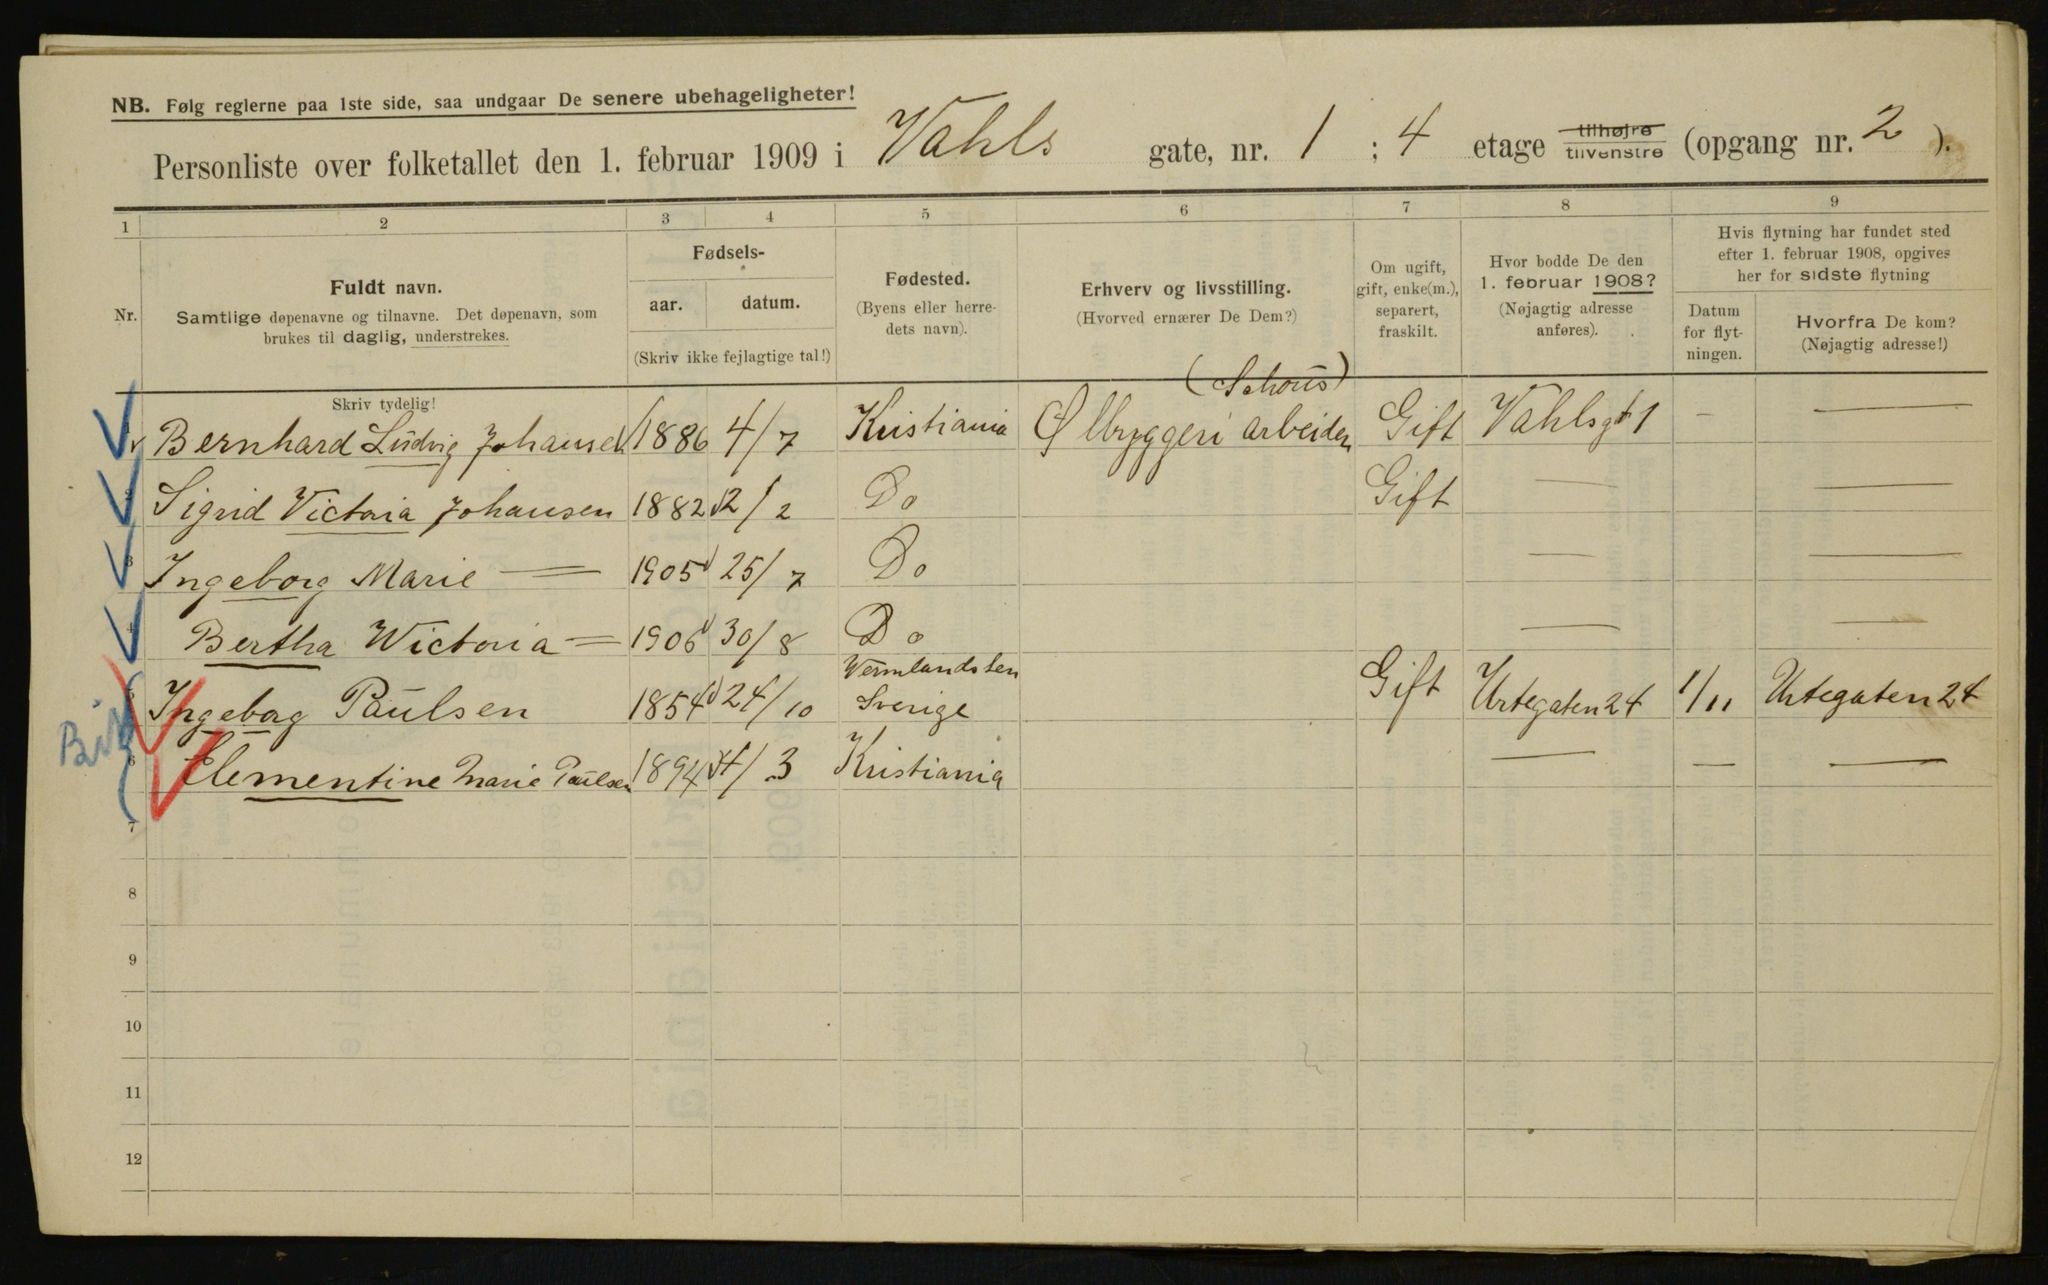 NB. Følg reglerne paa 1ste side, saa undgaar De senere ubehageligheter!
Personliste over folketallet den 1. februar 1909 i Vahls gate, nr. 1 ; 4 etage tilhøjre tilvenstre (opgang nr. 2 ).
1 2 3 4 5 6 7 8 9
Nr.
Fuldt navn.
Samtlige døpenavne og tilnavne. Det døpenavn, som
brukes til daglig, understrekes.
Skriv tydelig!
Fødsels-
aar. datum.
(Skriv ikke fejlagtige tal!)
Fødested.
(Byens eller herre-
dets navn).
Erhverv og livsstilling.
(Hvorved ernærer De Dem?)
Om ugift,
gift, enke(m.),
separert,
fraskilt.
Hvor bodde De den
1. februar 1908?
(Nøjagtig adresse
anføres).
Hvis flytning har fundet sted
efter 1. februar 1908, opgives
her for sidste flytning
Datum
for flyt-
ningen.
Hvorfra De kom?
(Nøjagtig adresse!)
(Schous)
Bernhard Ludvig Johansen 1886 4/7 Kristiania Ølbryggeri arbeider Gift Vahlsgt 1 — —
2 Sigrid Victoria Johansen 1882 12/2 Do Gift — —
3 Ingeborg Marie = 1905 25/7 Do — —
4 Bertha Wictoria = 1906 30/8 Do — —
Wermlandslen
5 Ingeborg Paulsen 1854 24/10 Sverige Gift Urtegaten 24 1/11 Urtegaten 24
6 Clementine Marie Paulsen 1894 /3 Kristiania — — —
7
8
9
10
11
12